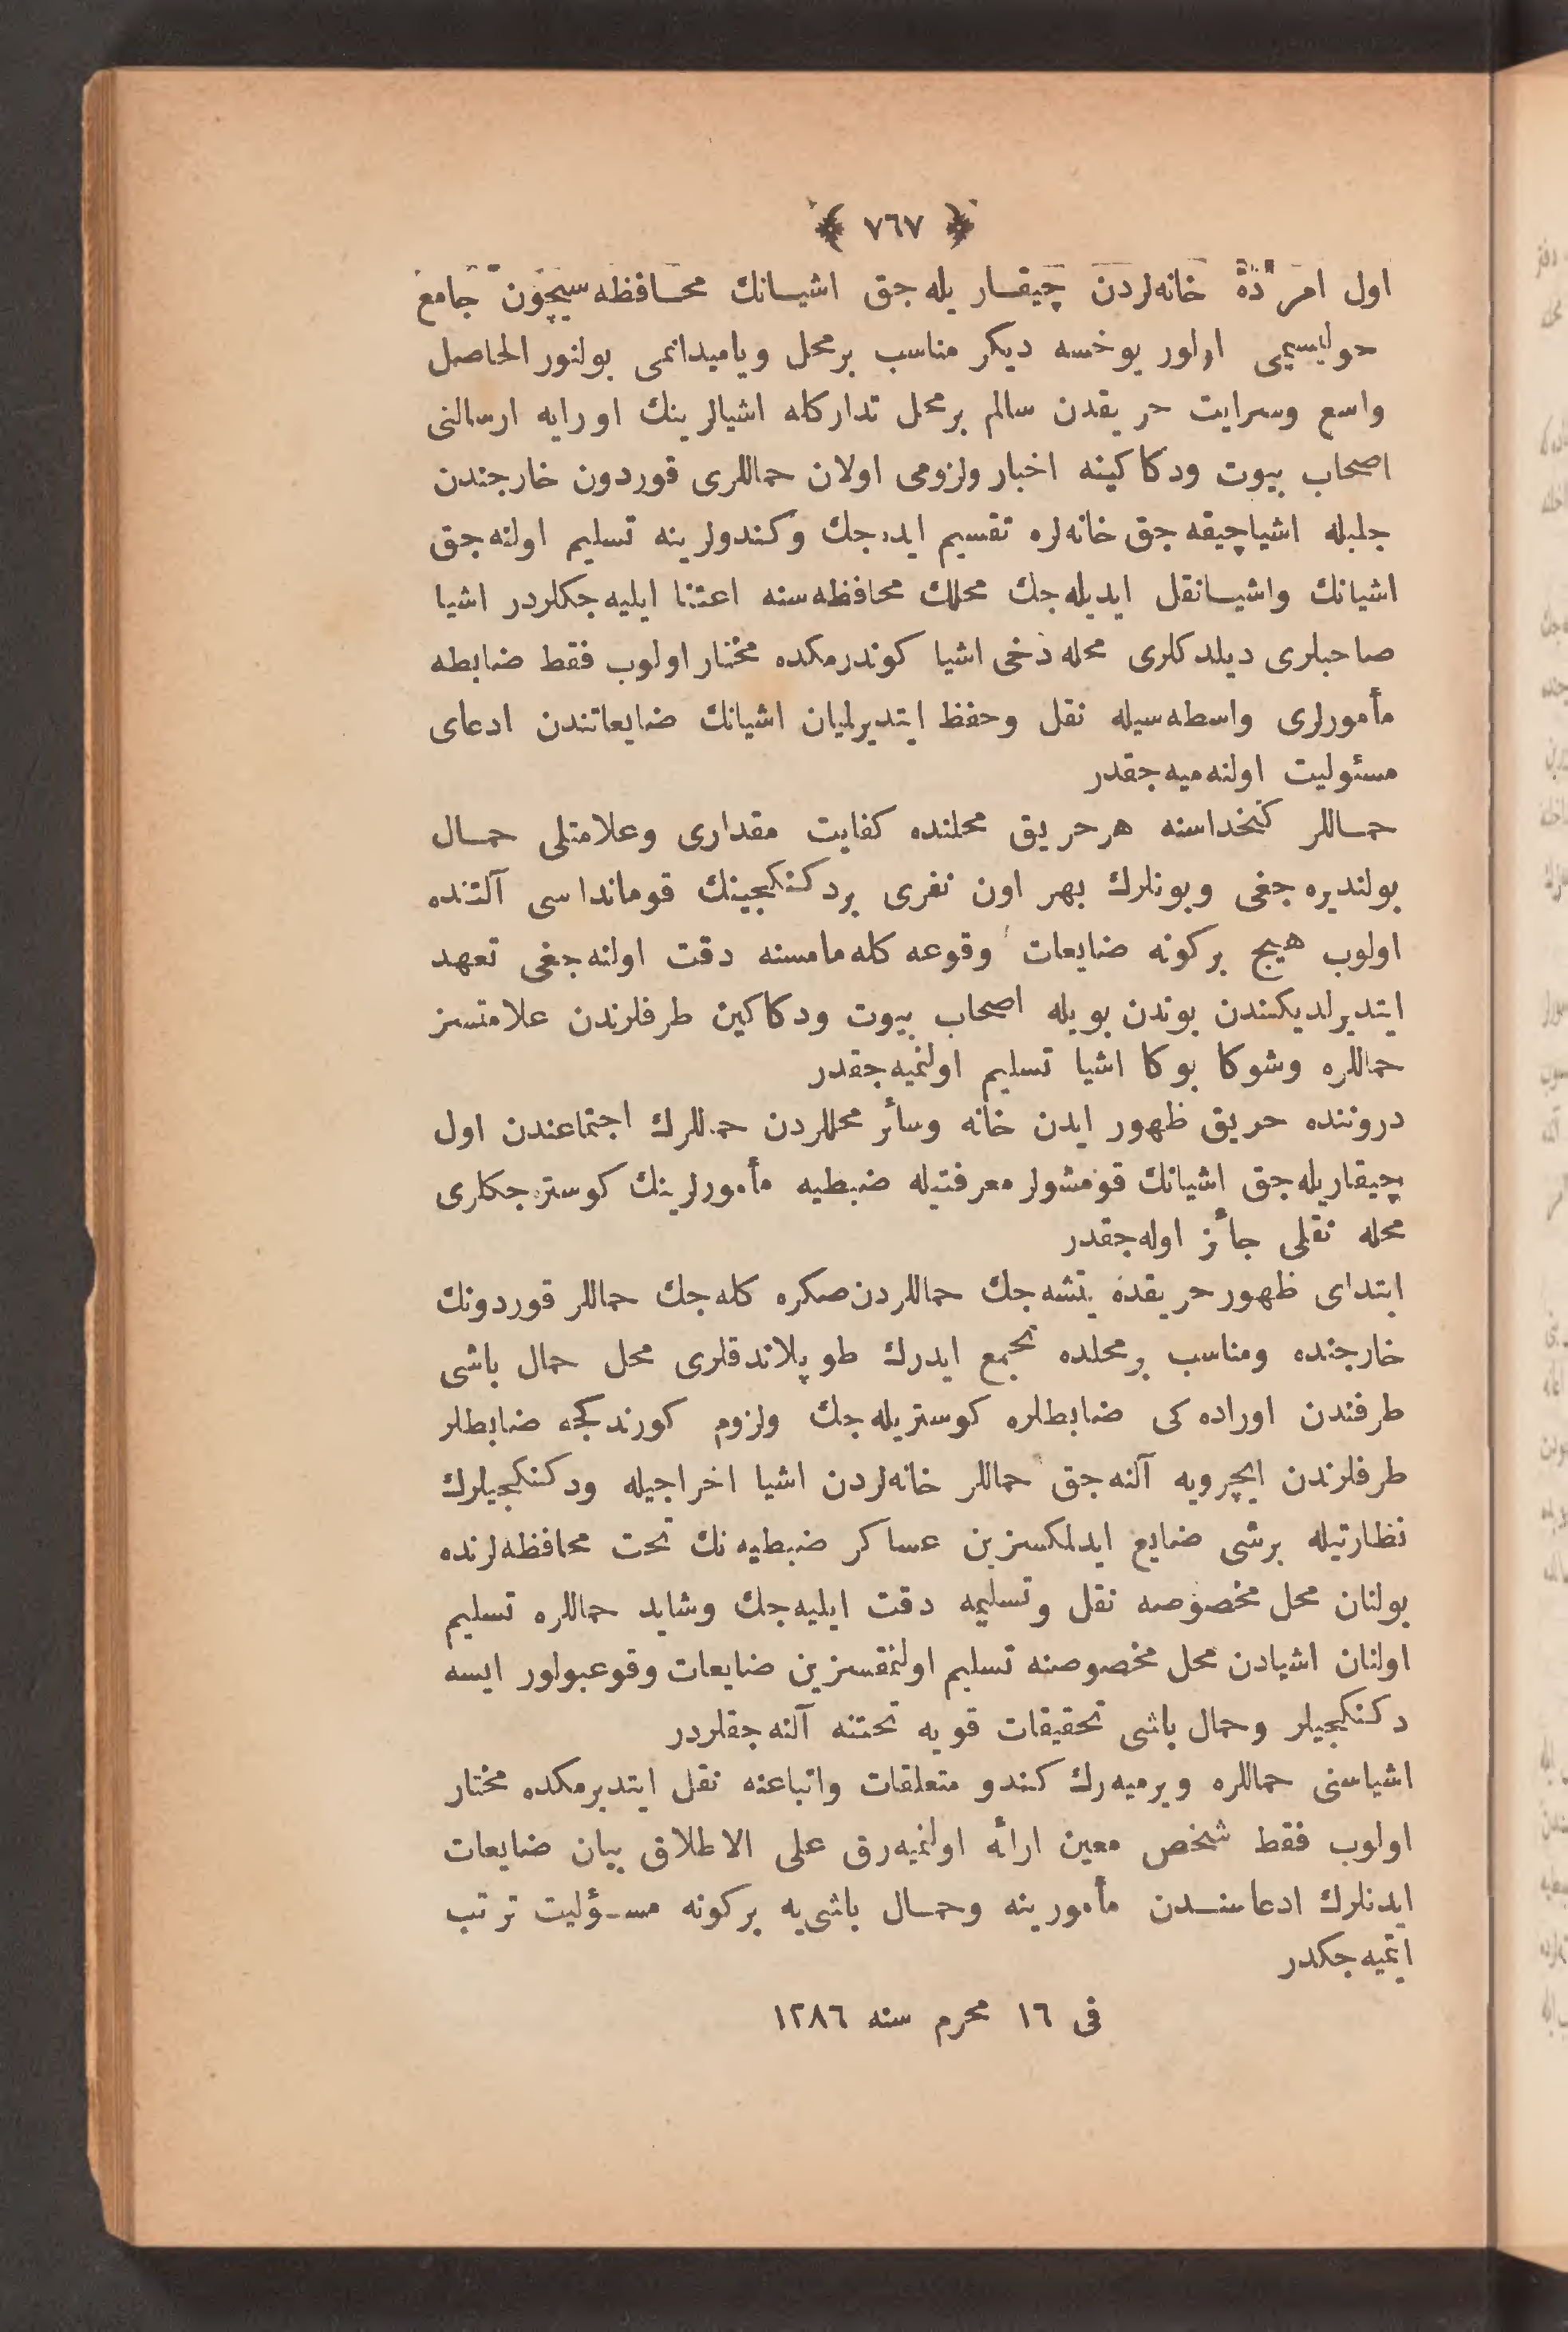 ﴿ ٧٦٧ ﴾
اول امرده خانه‌لردن چیقاریله‌جق اشیانك محافظه‌سیچون جامع
حولیسیمی اولور یوخسه دیكر مناسب برمحل ویامیدانمی بولنور الحاصل
واسع وسرایت حریقدن سالم برمحل تداركله اشیالرینك اورایه ارسالنی
اصحاب بیوت ودكاكینه اخبار ولزومی اولان حماللری قوردون خارجندن
جلبله اشیاچیقه‌جق خانه‌لره تقسیم ایده‌جك وكندولرینه تسلیم اولنه‌جق
اشیانك واشیانقل ایدیله‌جك محللك محافظه‌سنه اعتنا ایلیه‌جكلردر اشیا
صاحبلری دیلدكلری محله دخی اشیا كوندرمكده مختار اولوب فقط ضابطه
مأمورلری واسطه‌سیله نقل وحفظ ایتدیرلمیان اشیانك ضایعاتندن ادعای
مسئولیت اولنه‌میه‌جقدر
حماللر كتخداسنه هرحریق محلنده كفایت مقداری وعلامتلی حمال
بولندیره‌جغی وبونلرك بهر اون نفری بردكنكجینك قومانداسی آلتنده
اولوب هیچ بركونه ضایعات وقوعه كله‌مامسنه دقت اولنه‌جغی تعهد
ایتدیرلدیكندن بوندن بویله اصحاب بیوت ودكاكین طرفلرندن علامتسز
حماللره وشوكا بوكا اشیا تسلیم اولنمیه‌جقدر
دروننده حریق ظهور ایدن خانه وسائر محللردن حماللرك اجتماعندن اول
چیقاریله‌جق اشیانك قومشولر معرفتیله ضبطیه مأمورلرینك كوستره‌جكلری
محله نقلی جائز اوله‌جقدر
ابتدای ظهور حریقده یتشه‌جك حماللردن‌صكره كله‌جك حماللر قوردونك
خارجنده ومناسب برمحلده تجمع ایدرك طوپلاندقلری محل حمال باشی
طرفندن اوراده‌كی ضابطلره كوستریله‌جك ولزوم كورندكجه ضابطلر
طرفلرندن ایچرویه آلنه‌جق حماللر خانه‌لردن اشیا اخراجیله ودكنكجیلرك
نظارتیله برشی ضایع ایدلمكسزین عساكر ضبطیه‌نك تحت محافظه‌لرنده
بولنان محل مخصوصه نقل وتسلیمه دقت ایلیه‌جك وشاید حماللره تسلیم
اولنان اشیادن محل مخصوصنه تسلیم اولنمقسزین ضایعات وقوعبولور ایسه
دكنكجیلر وحمال باشی تحقیقات قویه تحتنه آلنه‌جقلردر
اشیاسنی حماللره ویرمیه‌رك كندو متعلقات واتباعنه نقل ایتدیرمكده مختار
اولوب فقط شخص معین ارائه اولنمیه‌رق علی الاطلاق بیان ضایعات
ایدنلرك ادعاسندن مأمورینه وحمال باشی‌یه بركونه مسؤلیت ترتب
ایتمیه‌جكدر
فی ١٦ محرم سنه ١٢٨٦